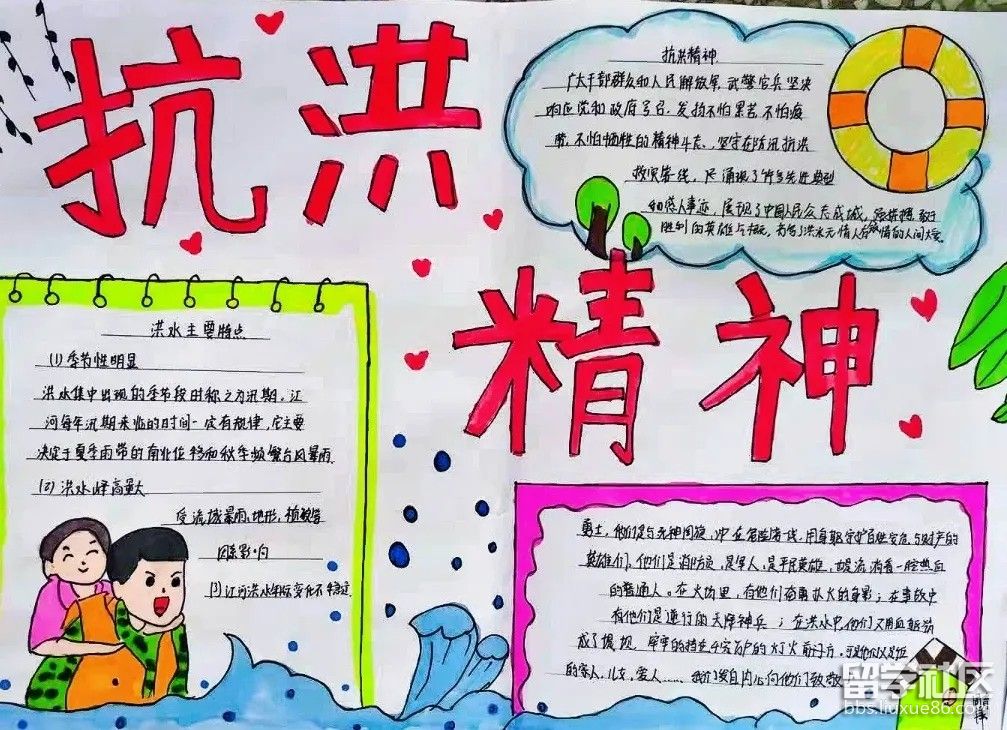 抗洪
精神
抗洪精神
广大干部群众和人民解放军、武警官兵坚决
响应党和政府号召,发扬不怕累苦不怕疲
劳、不怕牺牲的精神斗志、坚守在防汛抗洪
救灾第线,
涌现了许多先进典型
和感人事迹,展现了中国人民众志成城,
胜利的英雄气概,
洪水无情人有情的人间大爱
洪水主要特点
(1)季节性明显
洪水集中出现的季节段时称之为汛期。江
河每年汛期来临的时间一定有规律,它主要
决定于夏季雨带的南北位移和秋季频繁台风暴雨
(2)洪水峰高量大
受流域暴雨,地形,植被等
因素影响
(3)江河洪水年际变化不稳定
勇士,他们是与死神周旋,冲在危险第一线,用身躯守护百姓安危与财产的
英雄们。他们是消防员,是军人,是平民英雄,
流淌着一腔热血
的普通人。在火场里,有他们奋勇扑火的身影;在事故中
有他们是逆行的天降神兵;在洪水中他们又用血躯筑
成了堤坝,牢牢的挡在
万户的灯火前
的家人,儿女,爱人……我们发自内心向他们致敬
留学社区
bbs.liuxue86.com